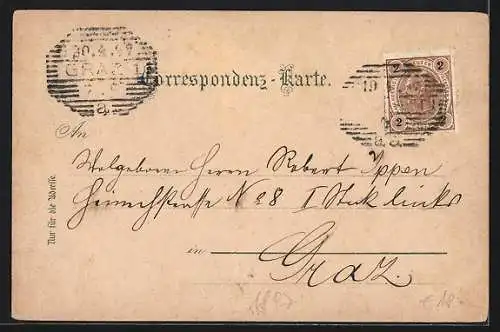 30.4.97
GRAZ 1
a
Correspondenz-Karte.
2 2
2 2
An
Wolgeboren Herrn Robert Ippen
Heinrichstrasse No 28 I Stock links
in Graz.
Nur für die Adresse.
1897
€ 18.-